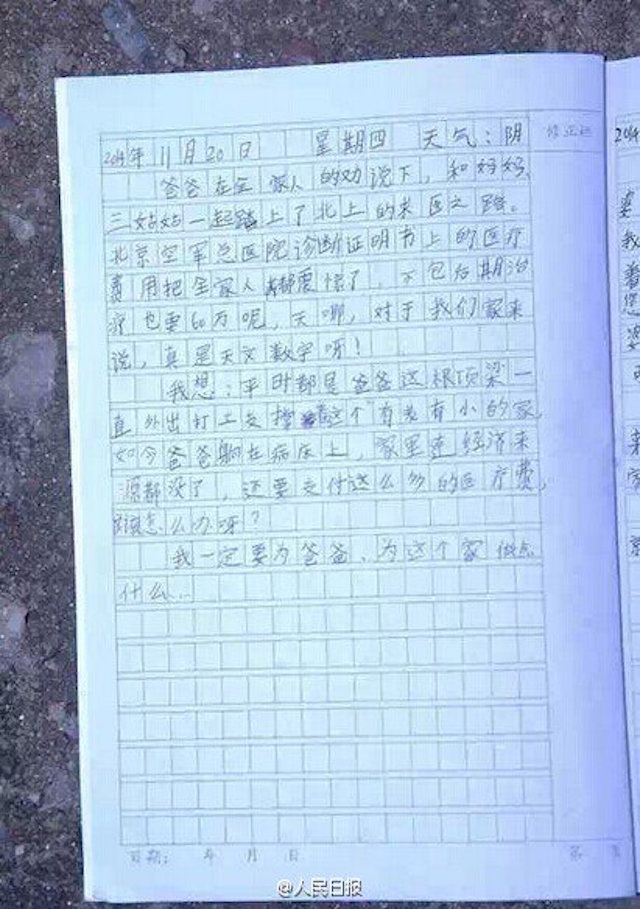 2014年11月20日 星期四 天气：阴 修正栏
爸爸在全家人的劝说下，和妈妈、
三姑姑一起踏上了北上的求医之路。
北京空军总医院诊断证明书上的医疗
费用把全家人都震惊了，不包后期治
疗也要60万呢，天哪，对于我们家来
说，真是天文数字呀！
我想：平时都是爸爸这根顶梁一
直外出打工支撑着这个有老有小的家，
如今爸爸躺在病床上，家里连经济来
源都没了，还要交付这么多的医疗费，
怎么办呀？
我一定要为爸爸、为这个家做点
什么…
日期： 年 月 日 第 页
@人民日报
2014
我
着
您